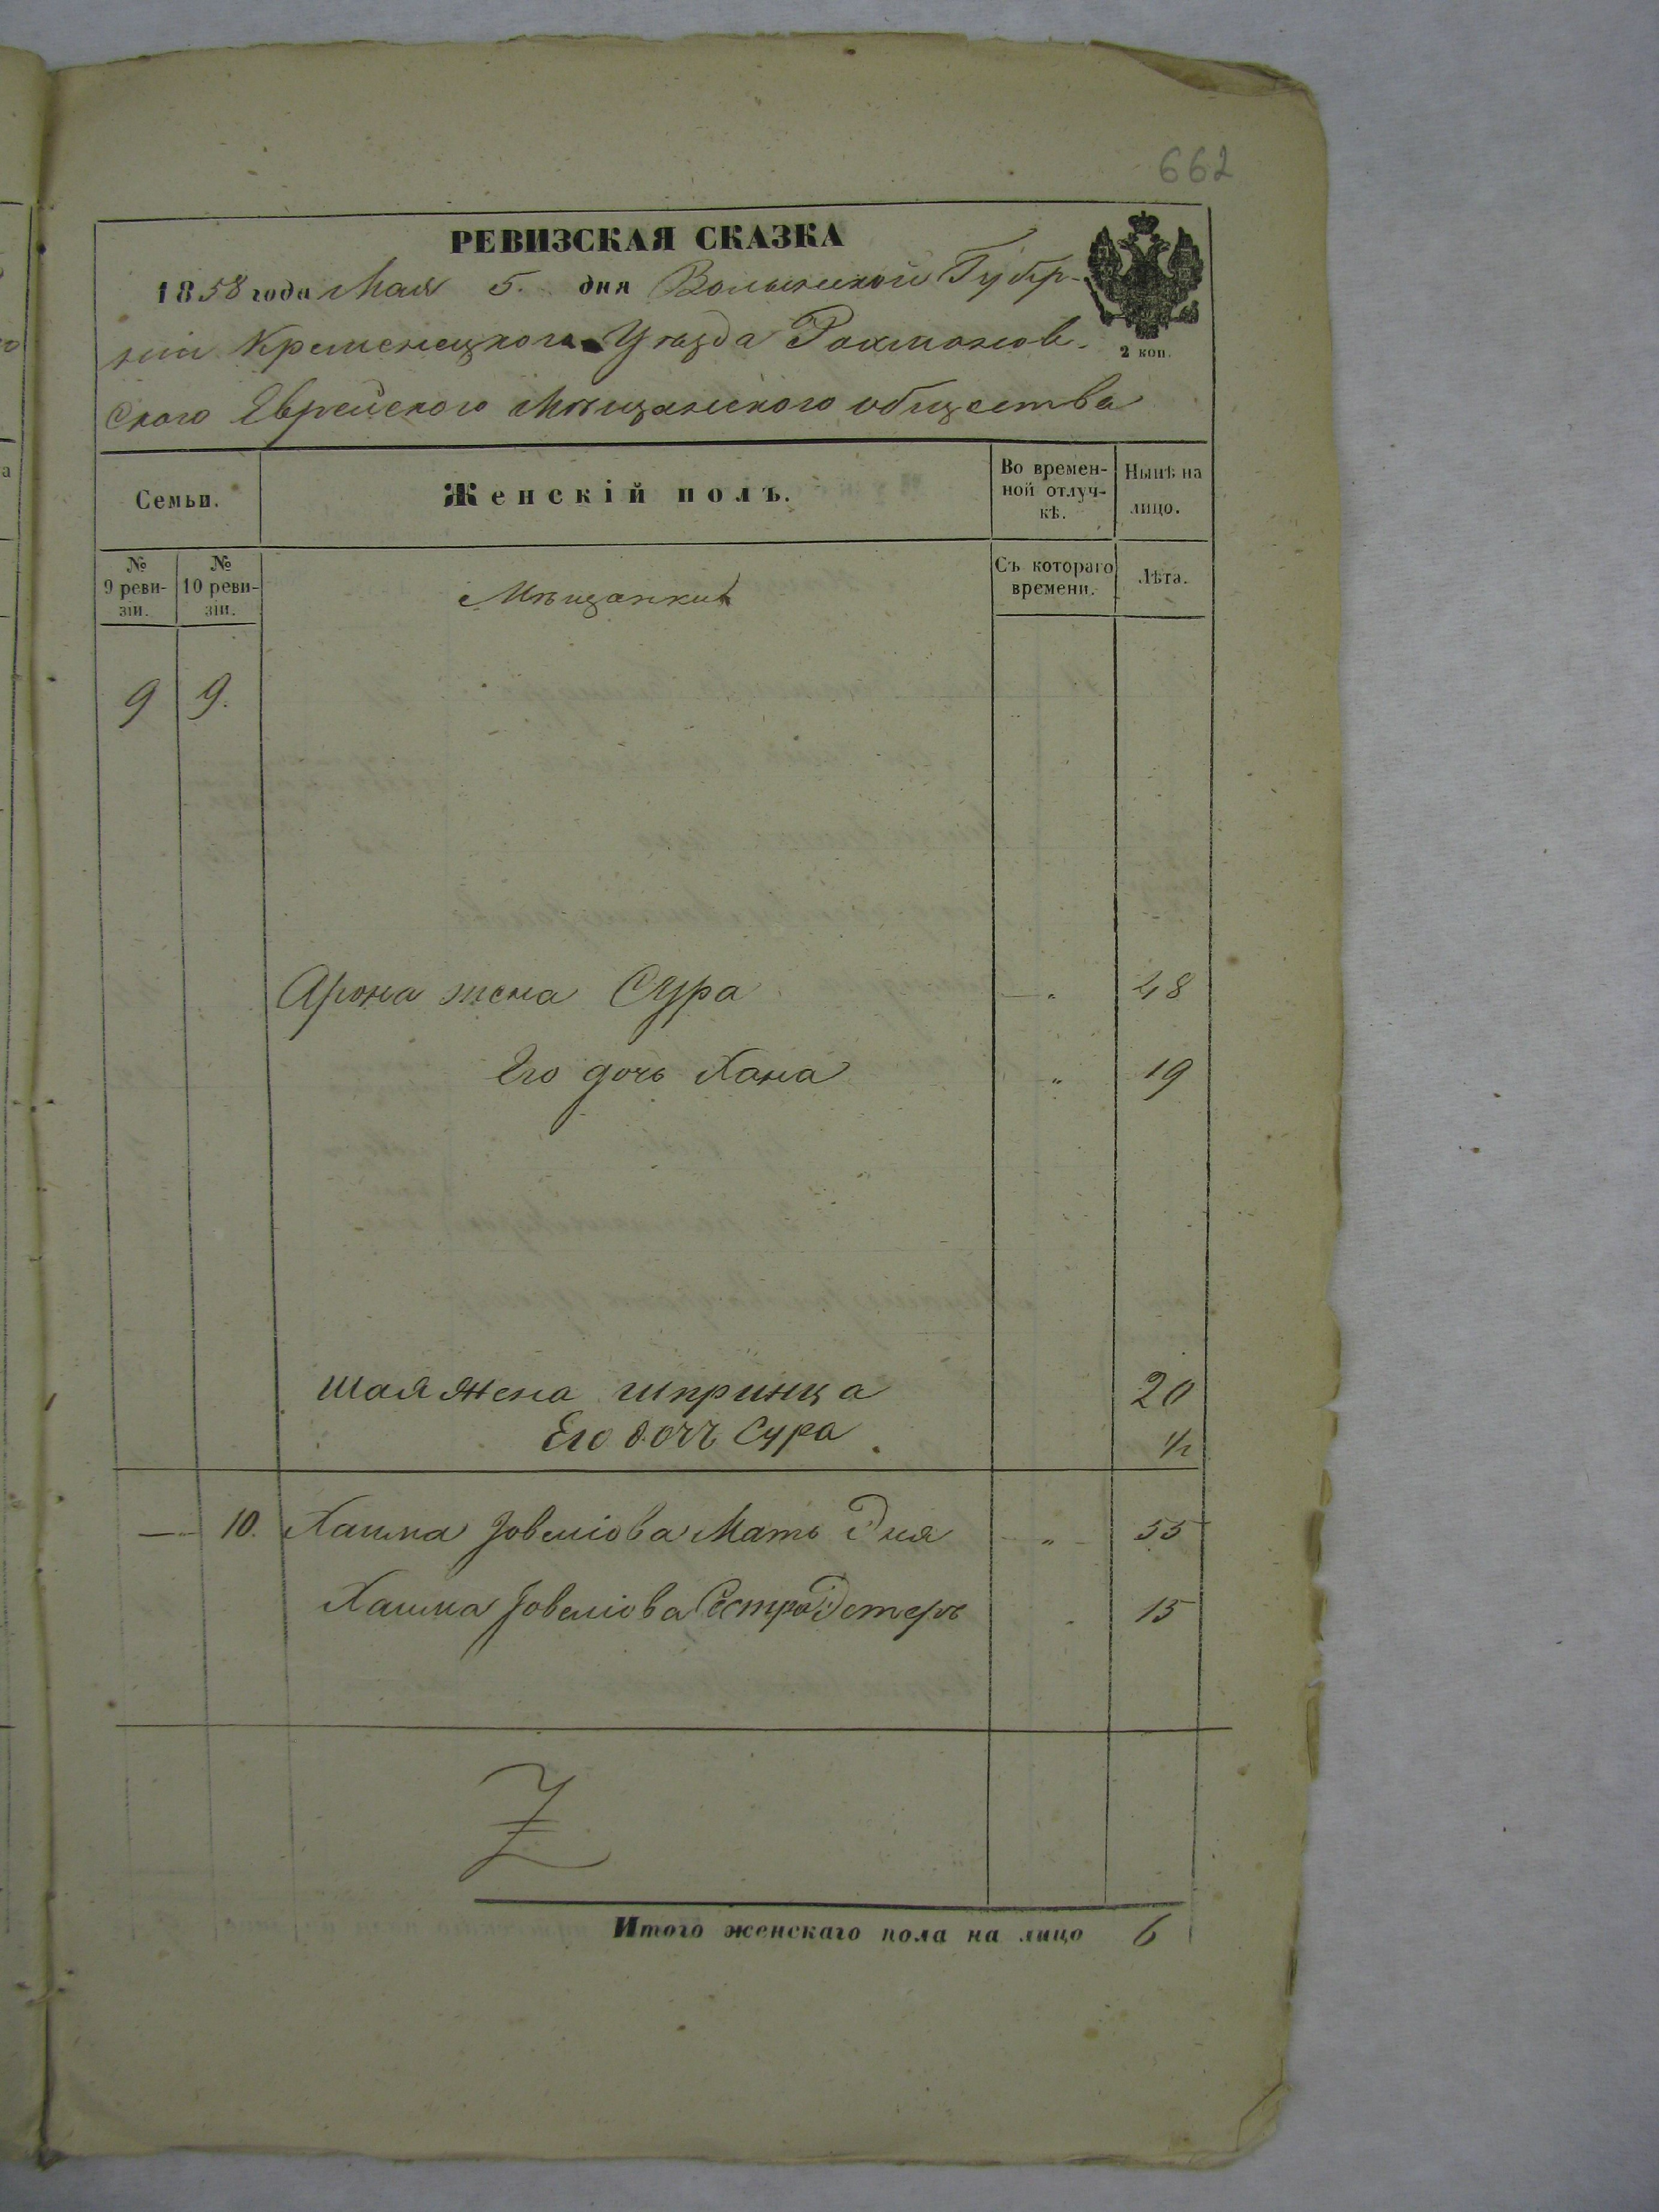 662
РЕВИЗСКАЯ СКАЗКА
1858 года Мая 5. дня Волынской Губер-
ніи Кременецкого Уѣзда Рахманов-
2 коп.
ского Еврейского Мѣщанского общества
Семьи.
Женскій полъ.
Во времен-
ной отлуч-
кѣ.
Нынѣ на
лицо.
№
9 реви-
зіи.
№
10 реви-
зіи.
Мѣщанки
Съ котораго
времени.
Лѣта.
9 9.
Арона жена Сура " 48
Его дочь Хана " 19
Шая жена Шпринца 20
Его дочь Сура 1/2
— 10. Іовеліова Мать " 55
Іовеліова Сестра Эстеръ 15
Итого женскаго пола на лицо 6